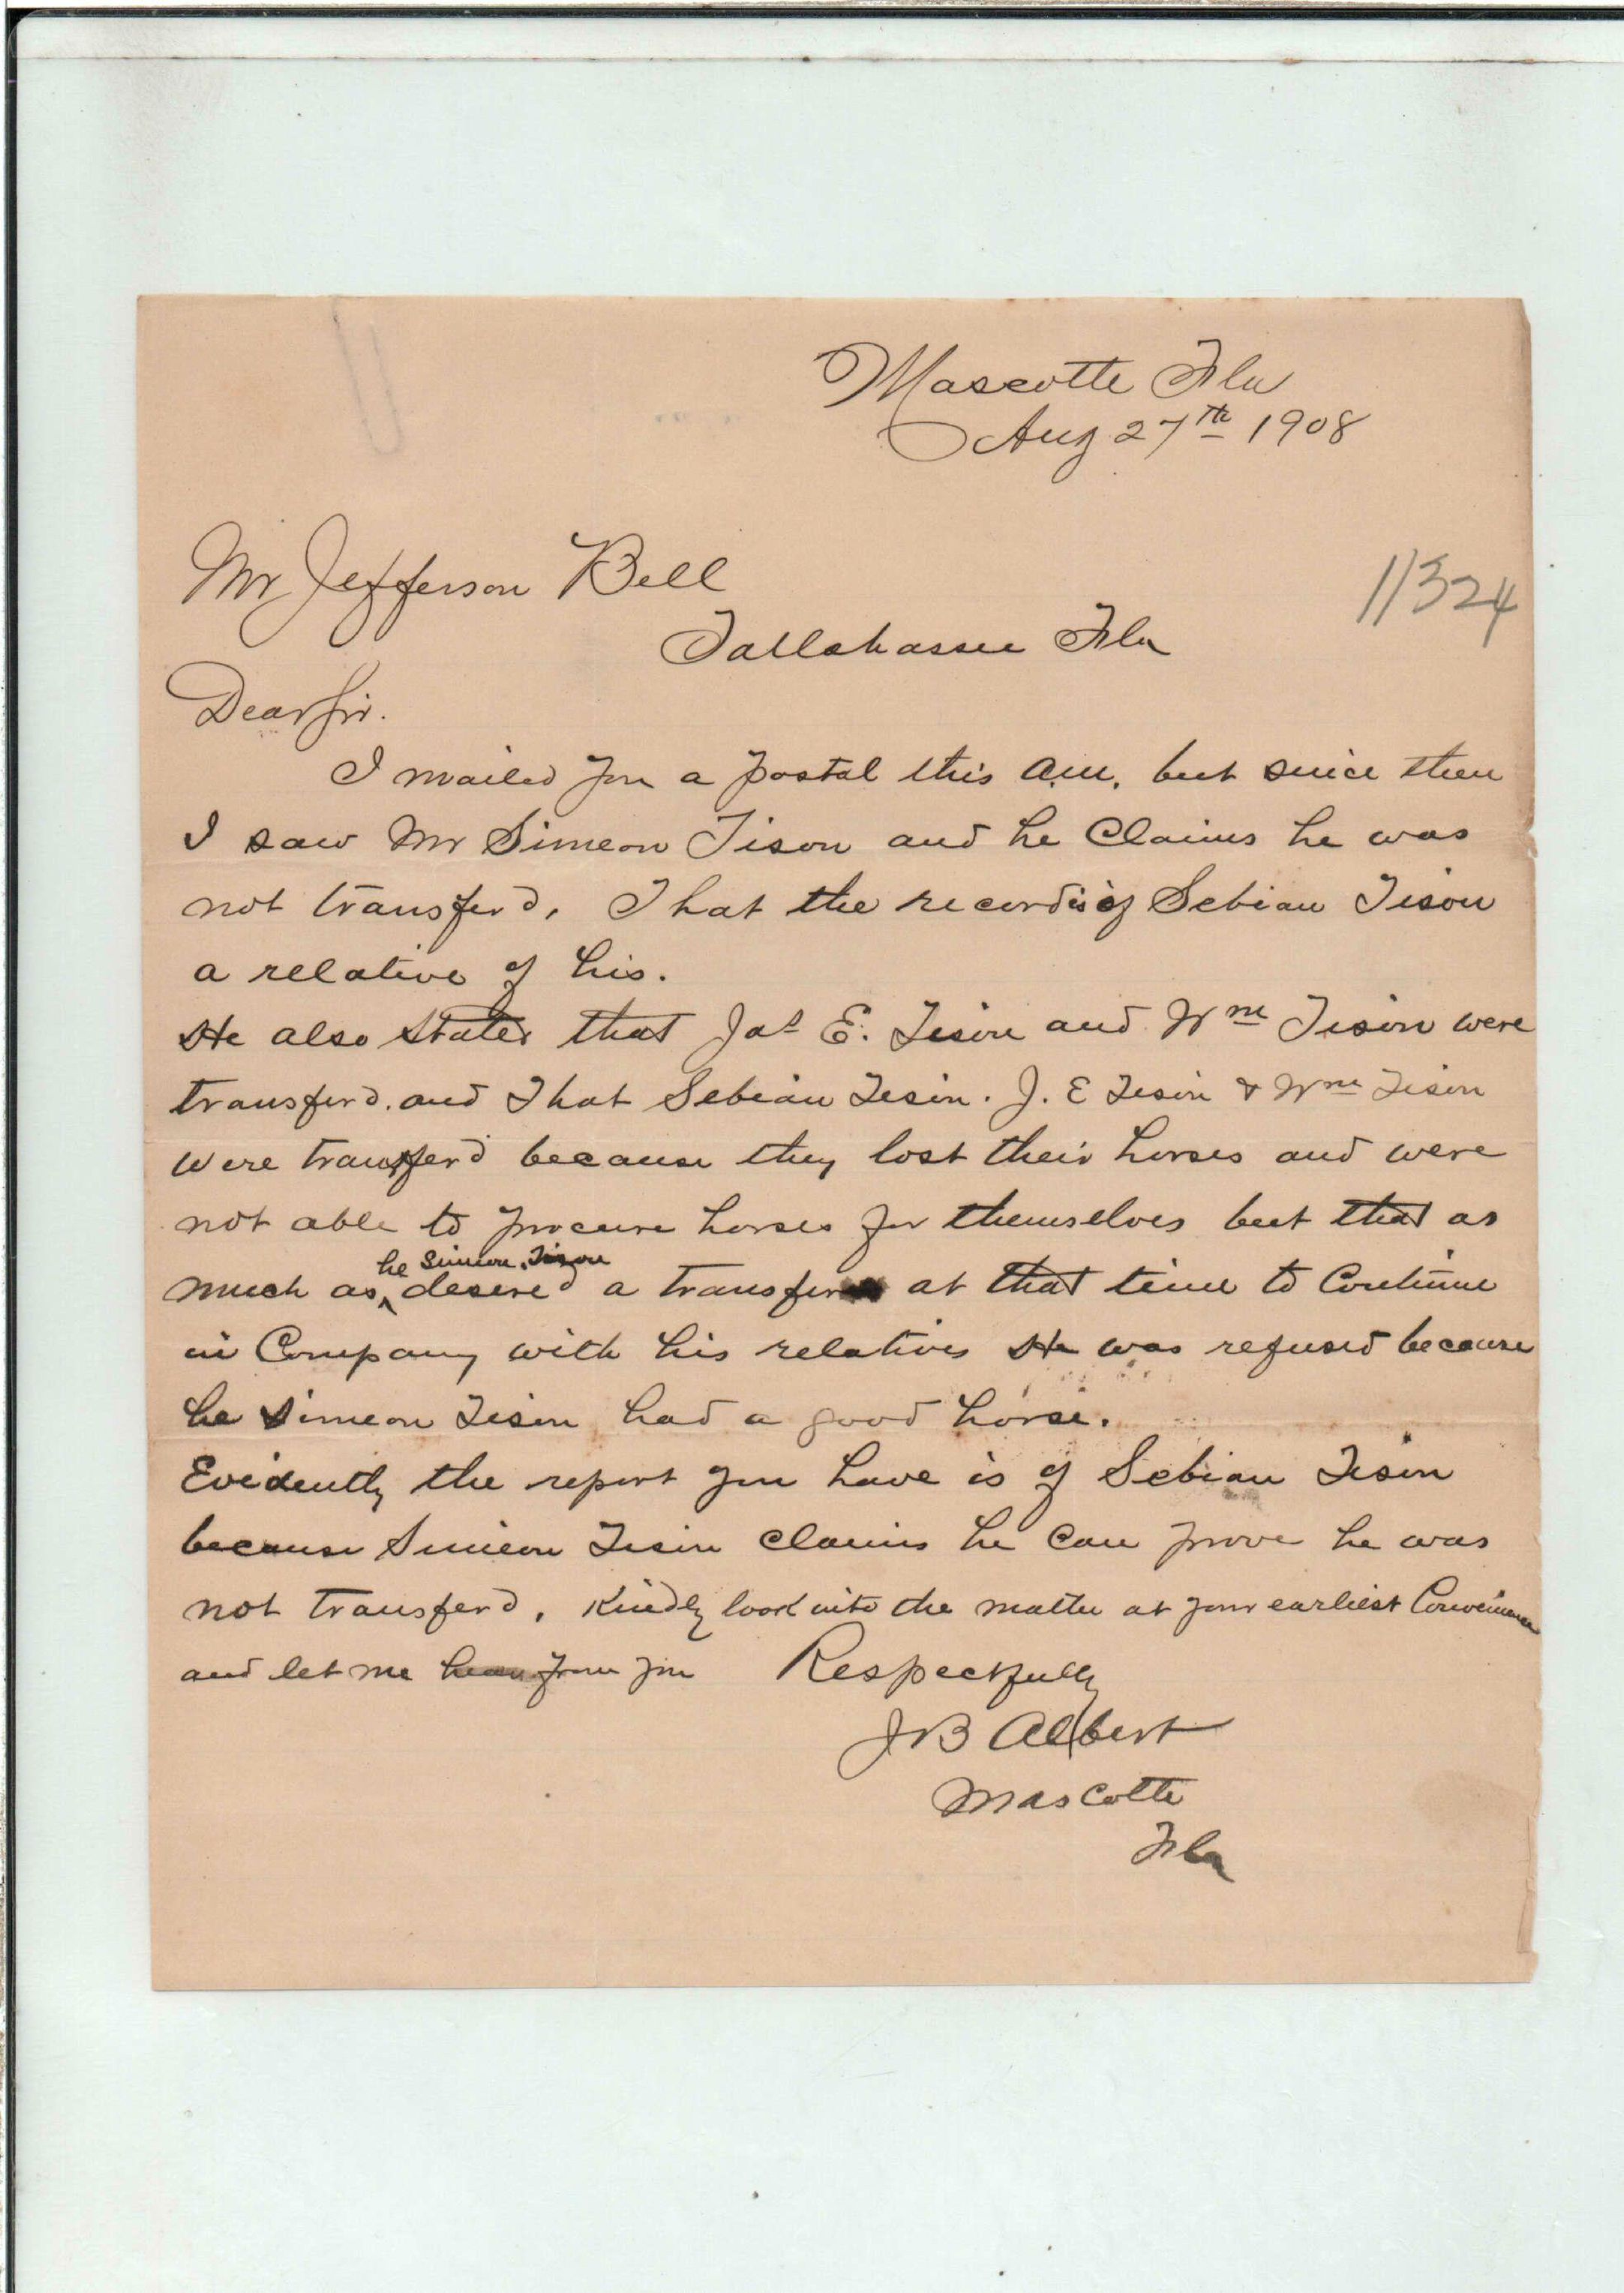 Mascotte Fla
Aug 27th 1908
Mr Jefferson Bell
11324
Tallahassee Fla
Dear Sir.
I mailed you a postal this a.m. but since then
I saw Mr Simeon Tison and he Claims he was
not transferd. That the record is of Sebian Tison
a relative of his.
He also states that Jas E. Tison and Wm Tison were
transferd. and That Sebian Tison. J. E Tison & Wm Tison
were transferd because they lost their horses and were
not able to procure horses for themselves but that as
he Simeon Tison
much as desired a transfer at that time to Continue
in Company with his relatives He was refused because
he Simeon Tison had a good horse.
Evidently the report you have is of Sebian Tison
because Simeon Tison claims he can prove he was
not transferd. Kindly look into the matter at your earliest Convenience
and let me hear from you Respectfully
J B Albert
Mascotte
Fla